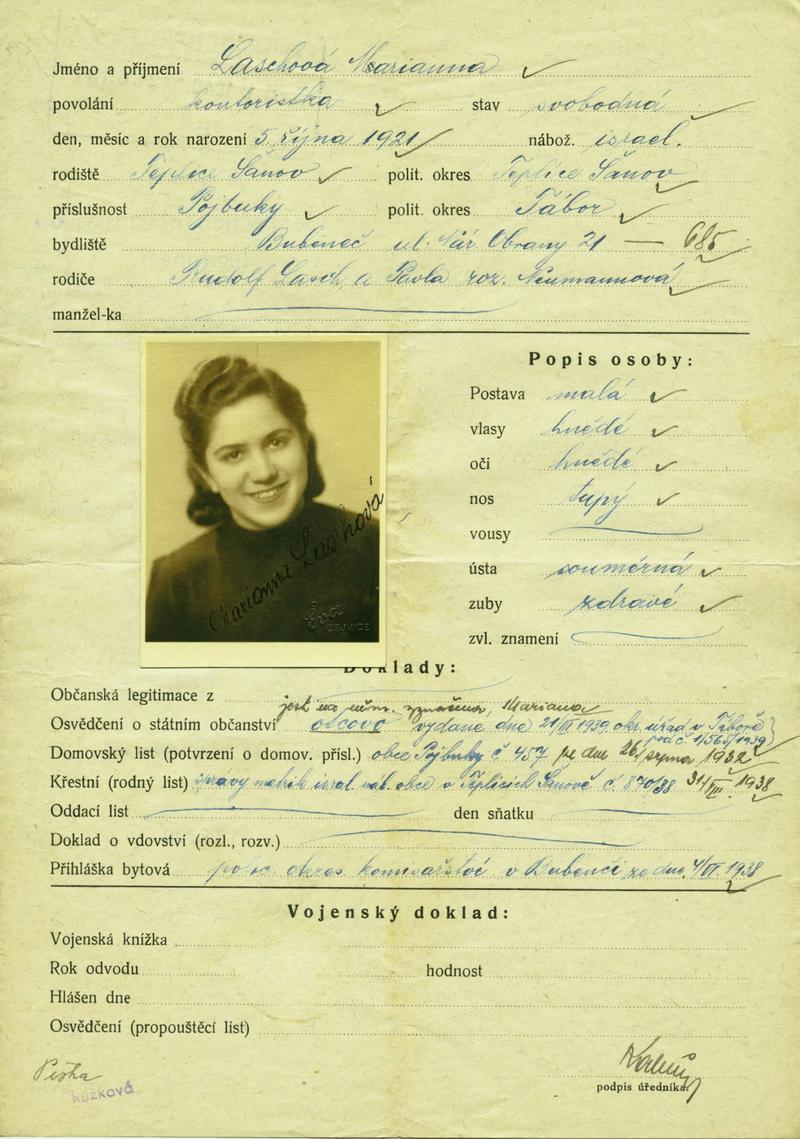 Jméno a příjmení Laschová Marianna
povolání kontoristka stav svobodná
den, měsíc a rok narození 5. října 1921 nábož. israel.
rodiště Teplice Šanov polit. okres Teplice Šanov
příslušnost Pojbuky polit. okres Tábor
bydliště Bubeneč ul. Nár. Obrany 21 — 685
rodiče Rudolf Lasch a Pavla roz. Neumannová
manžel-ka
Popis osoby:
Postava malá
vlasy hnědé
oči hnědé
nos tupý
vousy
ústa souměrná
zuby zdravé
zvl. znamení
Marianna Laschová
Eva
DEJVICE
Doklady:
Občanská legitimace z
jest na něm. Mariana
Osvědčení o státním občanství otcovo vydané dne 21/III 1939 okr. úřad v Táboře
Domovský list (potvrzení o domov. přísl.) obce Pojbuky č 457 ze dne 26/srpna 1932
Křestní (rodný list) israel. náb. obce v Teplicích Šanově č. 870/38 31/III 1938
Oddací list den sňatku
Doklad o vdovství (rozl., rozv.)
Přihláška bytová polic. okres. komisařství v Bubenči ze dne 4/VI 1938
Vojenský doklad:
Vojenská knížka
Rok odvodu hodnost
Hlášen dne
Osvědčení (propouštěcí list)
podpis úředníka.